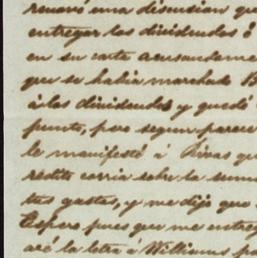 renovó una discusion que
entregar los dividendos ó
en su carta acusandome
que se habia marchado B
á los dividendos y quedé
punto, pero segun parece
le manifesté á Rivas que
redito corria sobre la suma
tos gastos, y me dijo que
Espero pues que me entreg
acé la letra á Williams pa